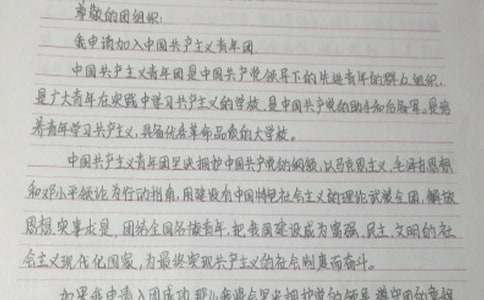 尊敬的团组织:
我申请加入中国共产主义青年团。
中国共产主义青年团是中国共产党领导下的先进青年的群众组织,
是广大青年在实践中学习共产主义的学校,是中国共产党的助手和后备军,是培
养青年学习共产主义,具备优在革命品质的大学校。
中国共产主义青年团坚决拥护中国共产党的纲领,以马克思主义,毛泽东思想
和邓小平理论为行动指南,用建设有中国特色社会主义的理论武装全团,解放
思想,实事求是,团结全国各族青年,把我国建设成为富强,民主,文明的社
会主义现代化国家,为最终实现共产主义的社会制度而奋斗。
如果我申请入团成功,那么我将会坚决拥护党的领导,遵守团的章程